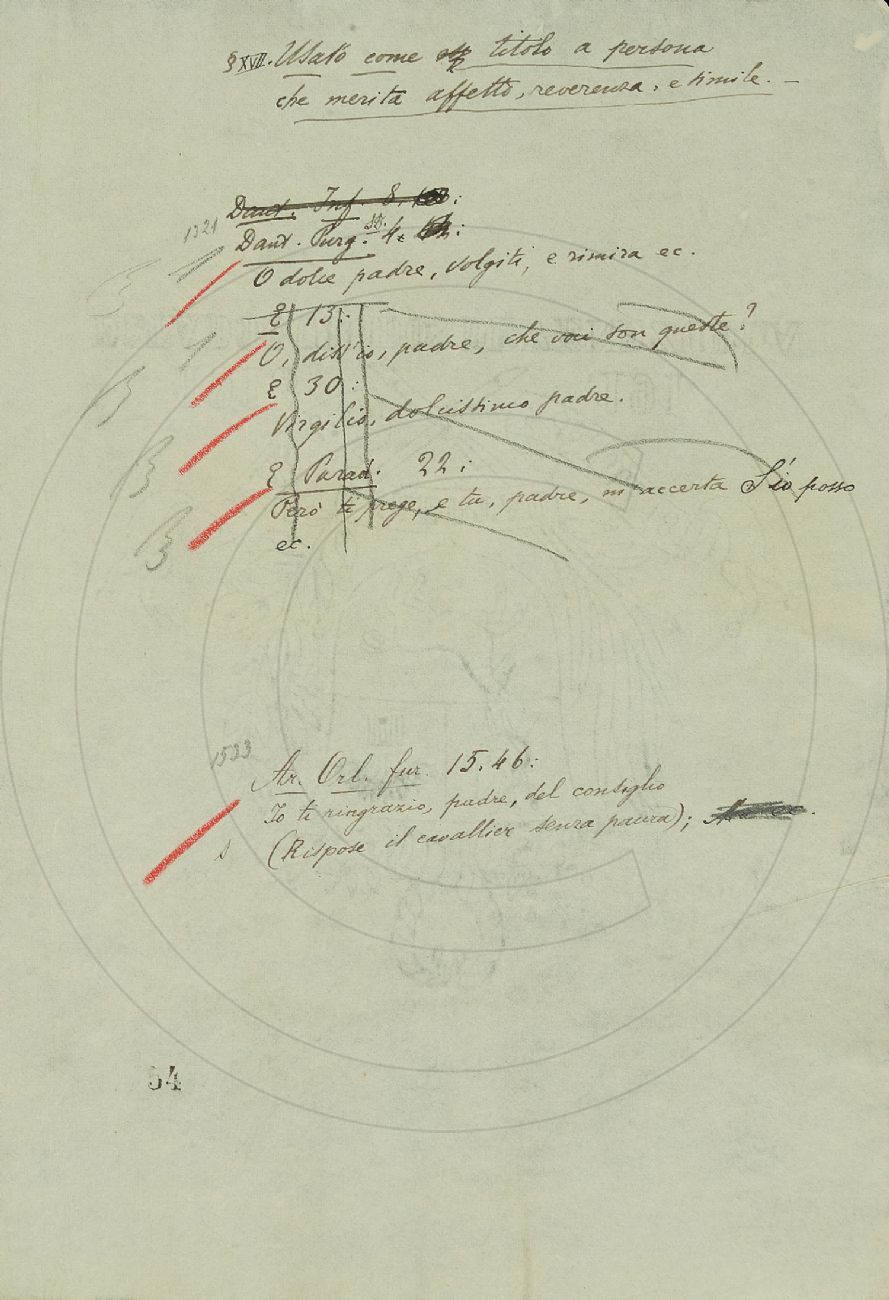 § XVII. Usato come titolo a persona
che merita affetto, reverenza, e simile. —
Dant. Inf. 8.
1321
Dant. Purg. 4.
O dolce padre, volgiti, e rimira ec.
E 13:
O, diss'io, padre, che voci son queste?
E 30:
Virgilio, dolcissimo padre.
E Parad. 22:
Però ti prego, e tu, padre, m'accerta S'io posso
ec.
1533
Ar. Orl. fur. 15. 46:
Io ti ringrazio, padre, del consiglio
(Rispose il cavallier senza paura);
54